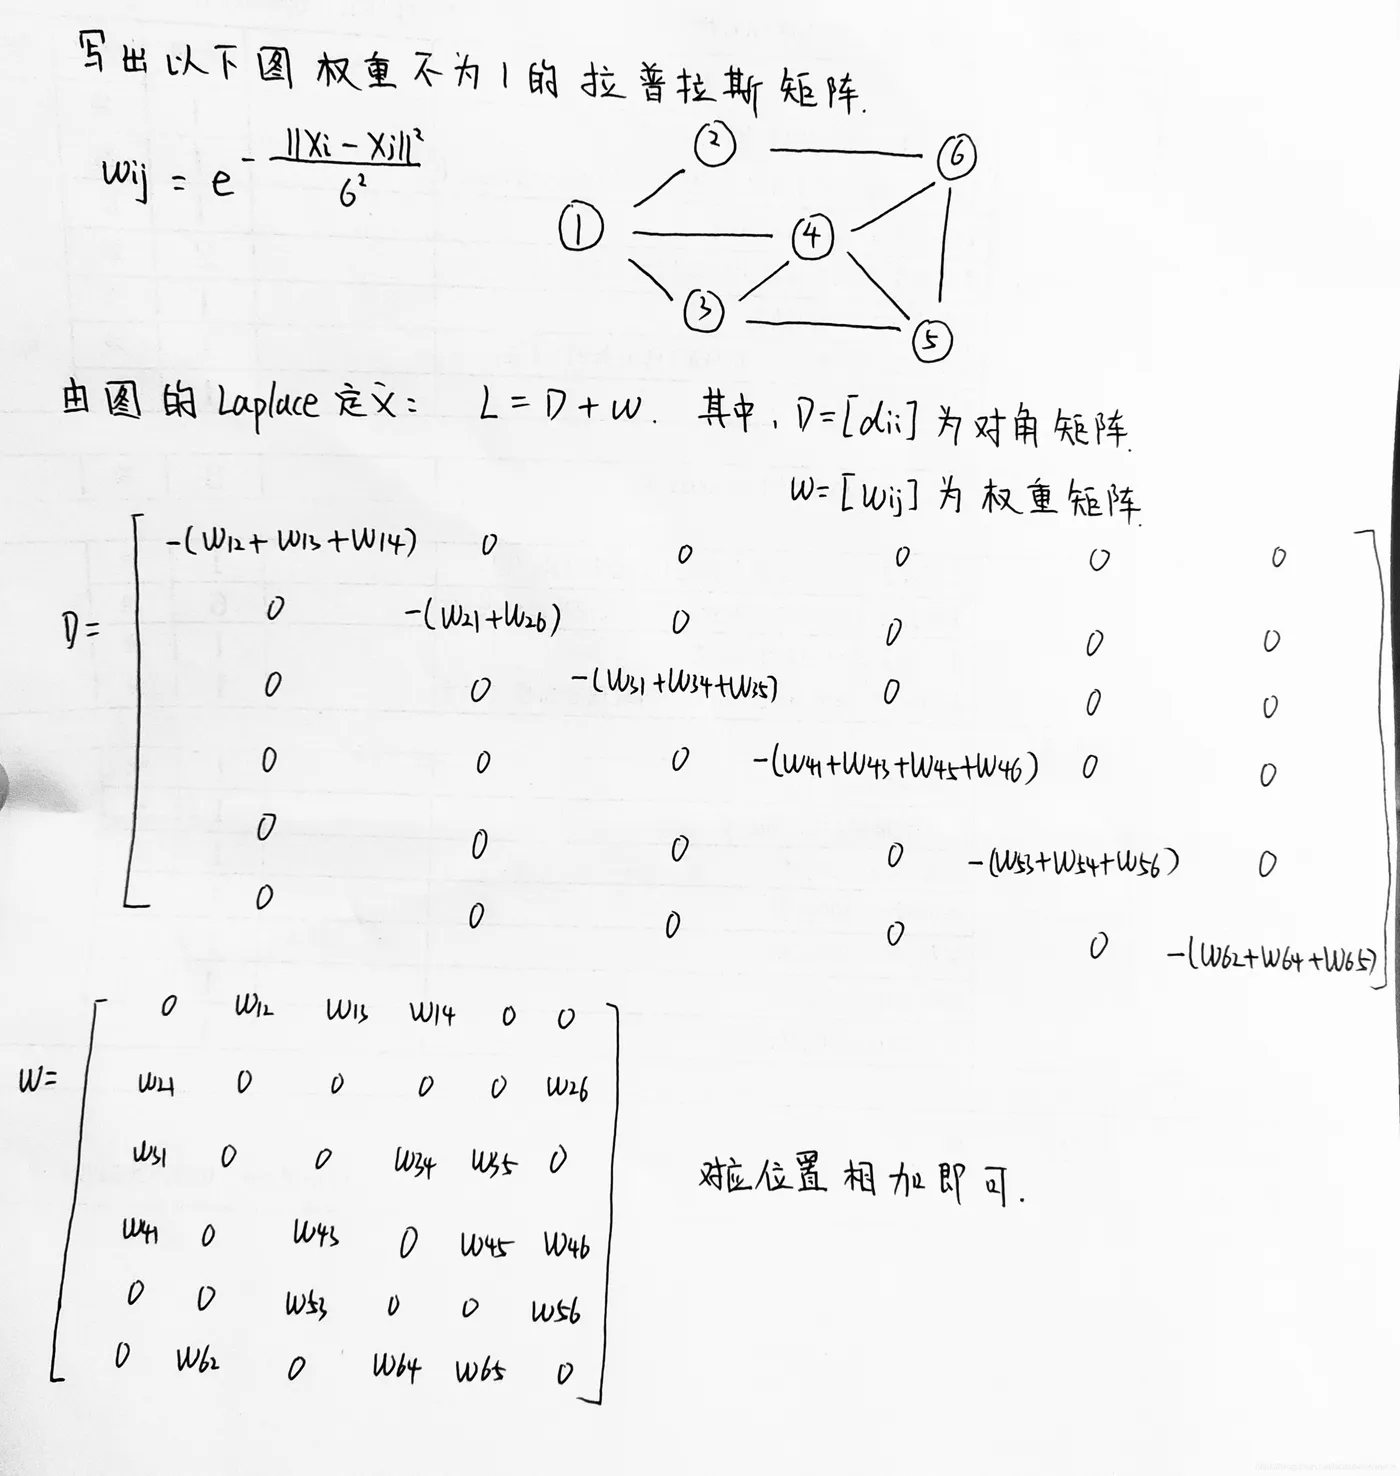 写出以下图 权重不为1的拉普拉斯矩阵.
wij = e^{-\frac{||Xi - Xj||^2}{6^2}}
②
⑥
①
④
③
⑤
由图的Laplace定义: L = D + W. 其中, D=[dii] 为对角矩阵.
W=[Wij] 为 权重矩阵.
D=
-(W12+W13+W14) 0 0 0 0 0
0 -(W21+W26) 0 0 0 0
0 0 -(W31+W34+W35) 0 0 0
0 0 0 -(W41+W43+W45+W46) 0 0
0 0 0 0 -(W53+W54+W56) 0
0 0 0 0 0 -(W62+W64+W65)
W=
0 W12 W13 W14 0 0
W21 0 0 0 0 W26
W31 0 0 W34 W35 0
W41 0 W43 0 W45 W46
0 0 W53 0 0 W56
0 W62 0 W64 W65 0
对应位置相加即可.